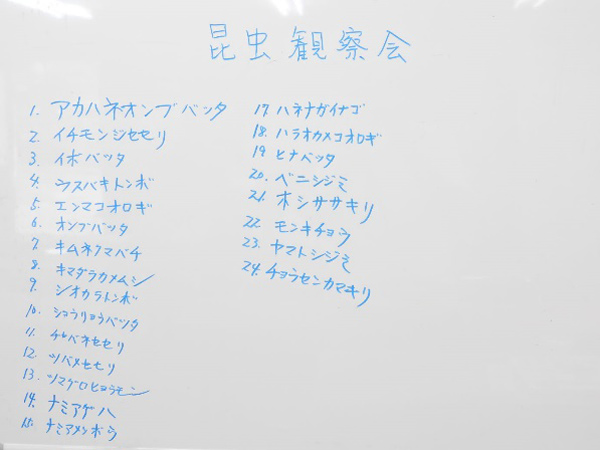 昆虫観察会
1. アカハネオンブバッタ
2. イチモンジセセリ
3. イボバッタ
4. ウスバキトンボ
5. エンマコオロギ
6. オンブバッタ
7. キムネクマバチ
8. キマダラカメムシ
9. シオカラトンボ
10. ショウリョウバッタ
11. チャバネセセリ
12. ツバメセセリ
13. ツマグロヒョウモン
14. ナミアゲハ
15. ナミアメンボウ
17. ハネナガイナゴ
18. ハラオカメコオロギ
19 ヒナバッタ
20. ベニシジミ
21. ホシササキリ
22. モンキチョウ
23. ヤマトシジミ
24. チョウセンカマキリ